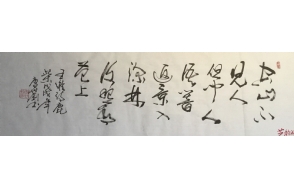 空山不
见人
但闻人
语响
返景入
深林
复照青
苔上
王维诗鹿
柴戊戌年